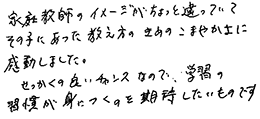 家庭教師のイメージがちょっと違っていて
その子にあった教え方のきめのこまやかさに
感動しました。
せっかくの良いチャンスなので、学習の
習慣が身につくのを期待したいものです